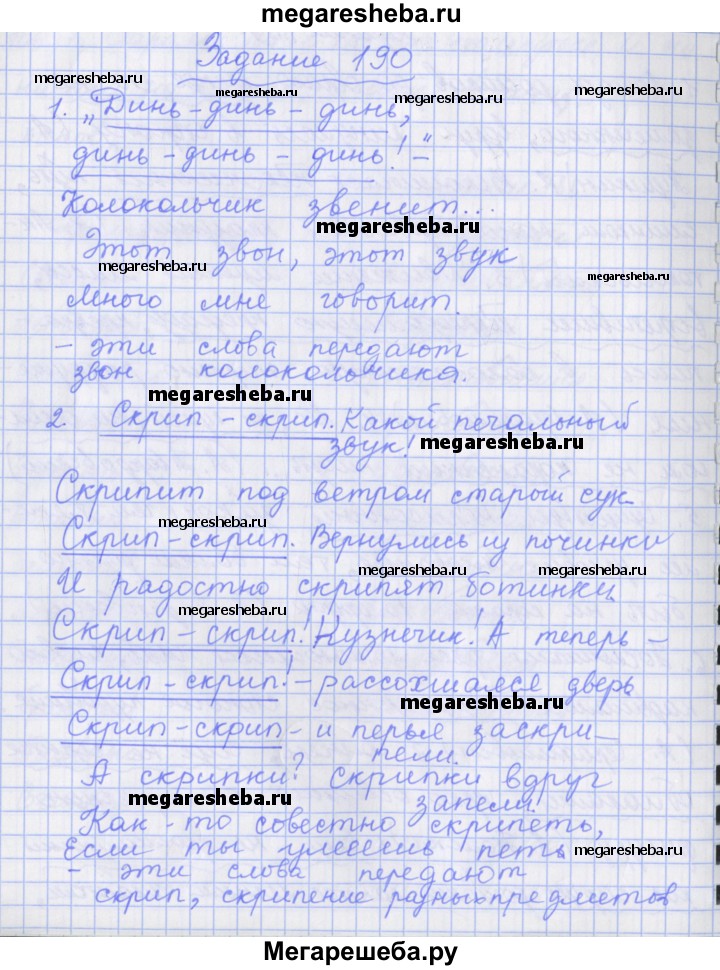 megaresheba.ru
Задание 190
megaresheba.ru megaresheba.ru
1. „Динь - динь - динь,
megaresheba.ru
динь - динь - динь!" -
Колокольчик звенит...
megaresheba.ru
Этот звон, этот звук
megaresheba.ru megaresheba.ru
Много мне говорит.
- эти слова передают
звон колокольчика.
megaresheba.ru
2. Скрип - скрип. Какой печальный
звук!
megaresheba.ru
Скрипит под ветром старый сук
megaresheba.ru
Скрип - скрип. Вернулись из починки
megaresheba.ru megaresheba.ru
И радостно скрипят ботинки
megaresheba.ru
Скрип - скрип! Кузнечик! А теперь -
Скрип - скрип! - рассохшаяся дверь
megaresheba.ru
Скрип - скрип - и перья заскри-
пели.
А скрипки? Скрипки вдруг
запели!
megaresheba.ru
Как - то совестно скрипеть,
Если ты умеешь петь
megaresheba.ru
- эти слова передают
скрип, скрипение разных предметов
Мегарешеба.ру